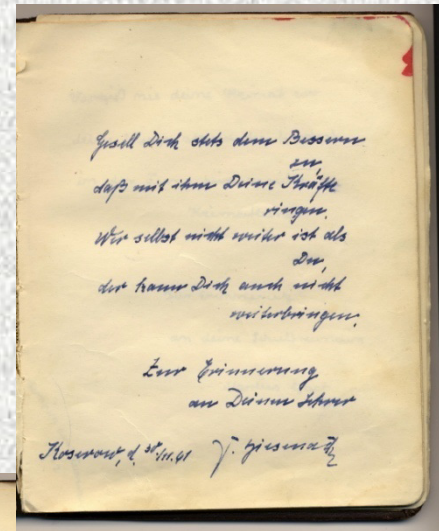 Gesell Dich stets dem Bessern
zu,
daß mit ihm Deine Kräfte
ringen.
Wer selbst nicht weiter ist als
Du,
der kann Dich auch nicht
weiterbringen.
Zur Erinnerung
an Deinen Lehrer
Koserow, d.